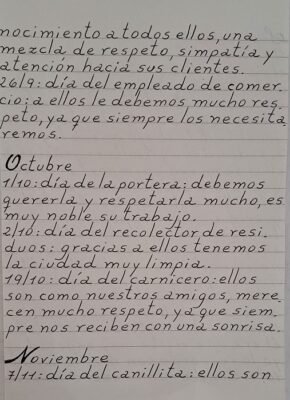 nocimiento a todos ellos, una
mezcla de respeto, simpatía y
atención hacia sus clientes.
26/9: día del empleado de comer-
cio: a ellos le debemos mucho res-
peto, ya que siempre los necesita
remos.
Octubre
1/10: día de la portera: debemos
quererla y respetarla mucho, es
muy noble su trabajo.
2/10: día del recolector de resi-
duos: gracias a ellos tenemos
la ciudad muy limpia.
19/10: día del carnicero: ellos
son como nuestros amigos, mere-
cen mucho respeto, ya que siem-
pre nos reciben con una sonrisa.
Noviembre
7/11: día del canillita: ellos son